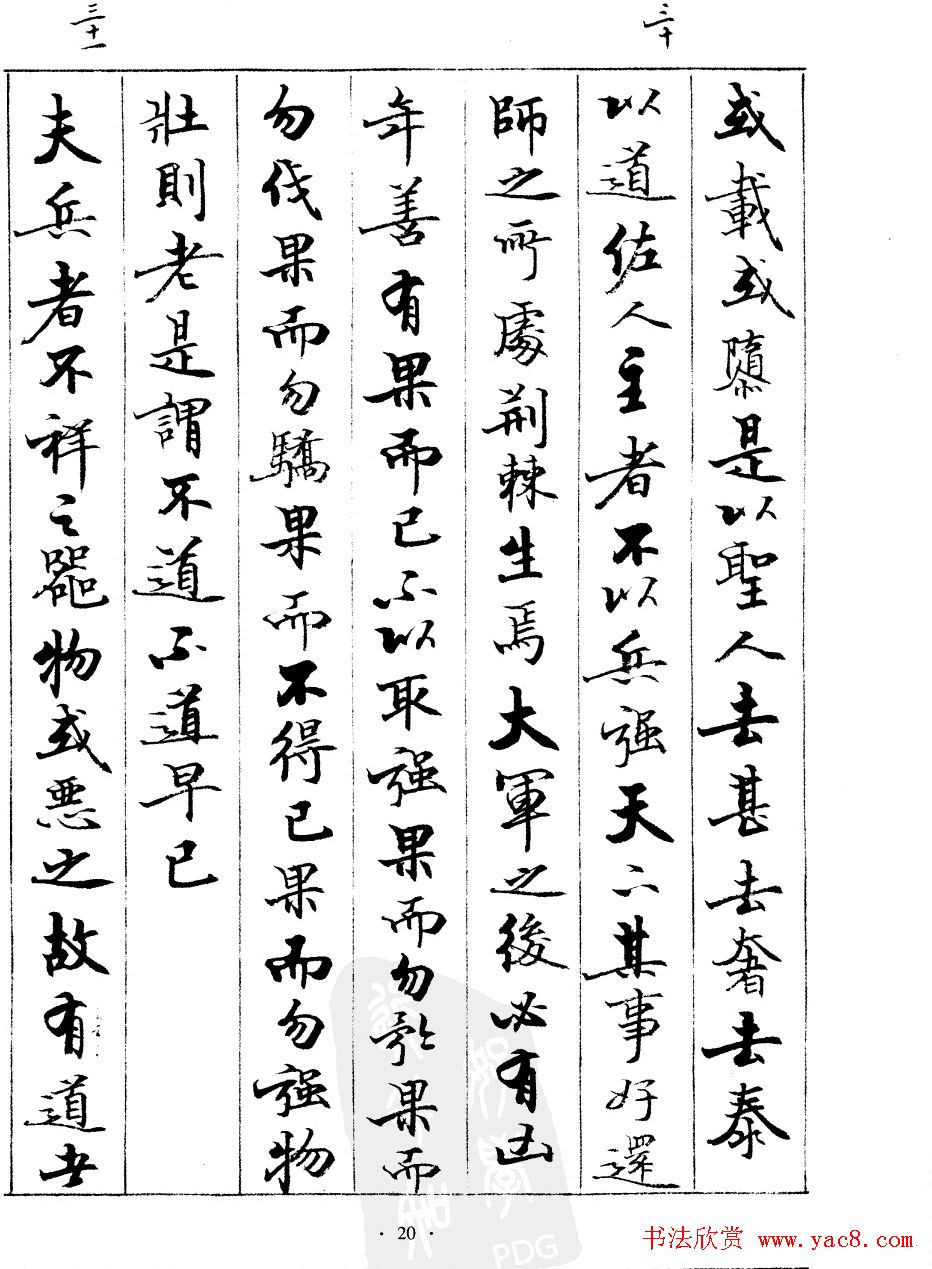 三十
三十一
或載或隳是以聖人去甚去奢去泰
以道佐人主者不以兵强天下其事好還
師之所處荆棘生焉大軍之後必有凶
年善有果而已不以取强果而勿矜果而
勿伐果而勿驕果而不得已果而勿强物
壯則老是謂不道不道早已
夫兵者不祥之器物或惡之故有道者
· 20 ·
PDG
书法欣赏 www.yac8.com